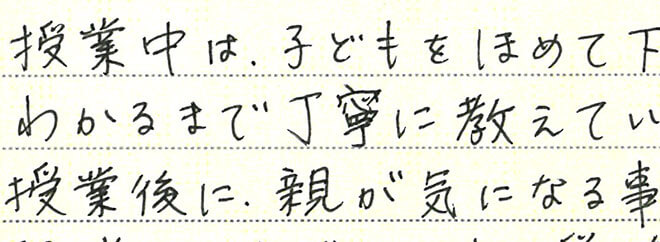 授業中は、子どもをほめて下
わかるまで丁寧に教えてい
授業後に、親が気になる事